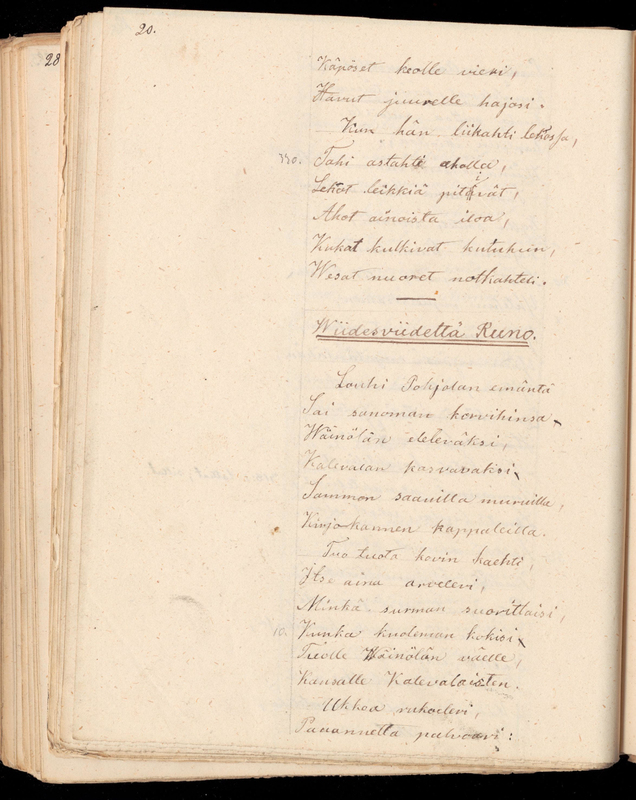 20.
28
Käpöset keolle vieri,
Havut juurelle hajosi.
Kun hän liikahti lehossa,
330. Tahi astahti aholla,
Lehot leikkiä pitivät,
Ahot ainoista iloa,
Kukat kulkivat kutuhun,
Wesat nuoret notkahteli.
Wiidesviidettä Runo.
Louhi Pohjolan emäntä
Sai sanoman korvihinsa
Wäinölän eleleväksi,
Kalevalan kasvavaksi
Sammon saauilla muruilla,
Kirjokannen kappaleilla.
Tuo tuota kovin kaehti,
Itse aina arvelevi,
Minkä surman suorittaisi,
10. Kunka kuoleman kokisi
Tuolle Wäinölän väelle,
Kansalle Kalevalaisten.
Ukkoa rukoelevi,
Pauannetta palvoavi: